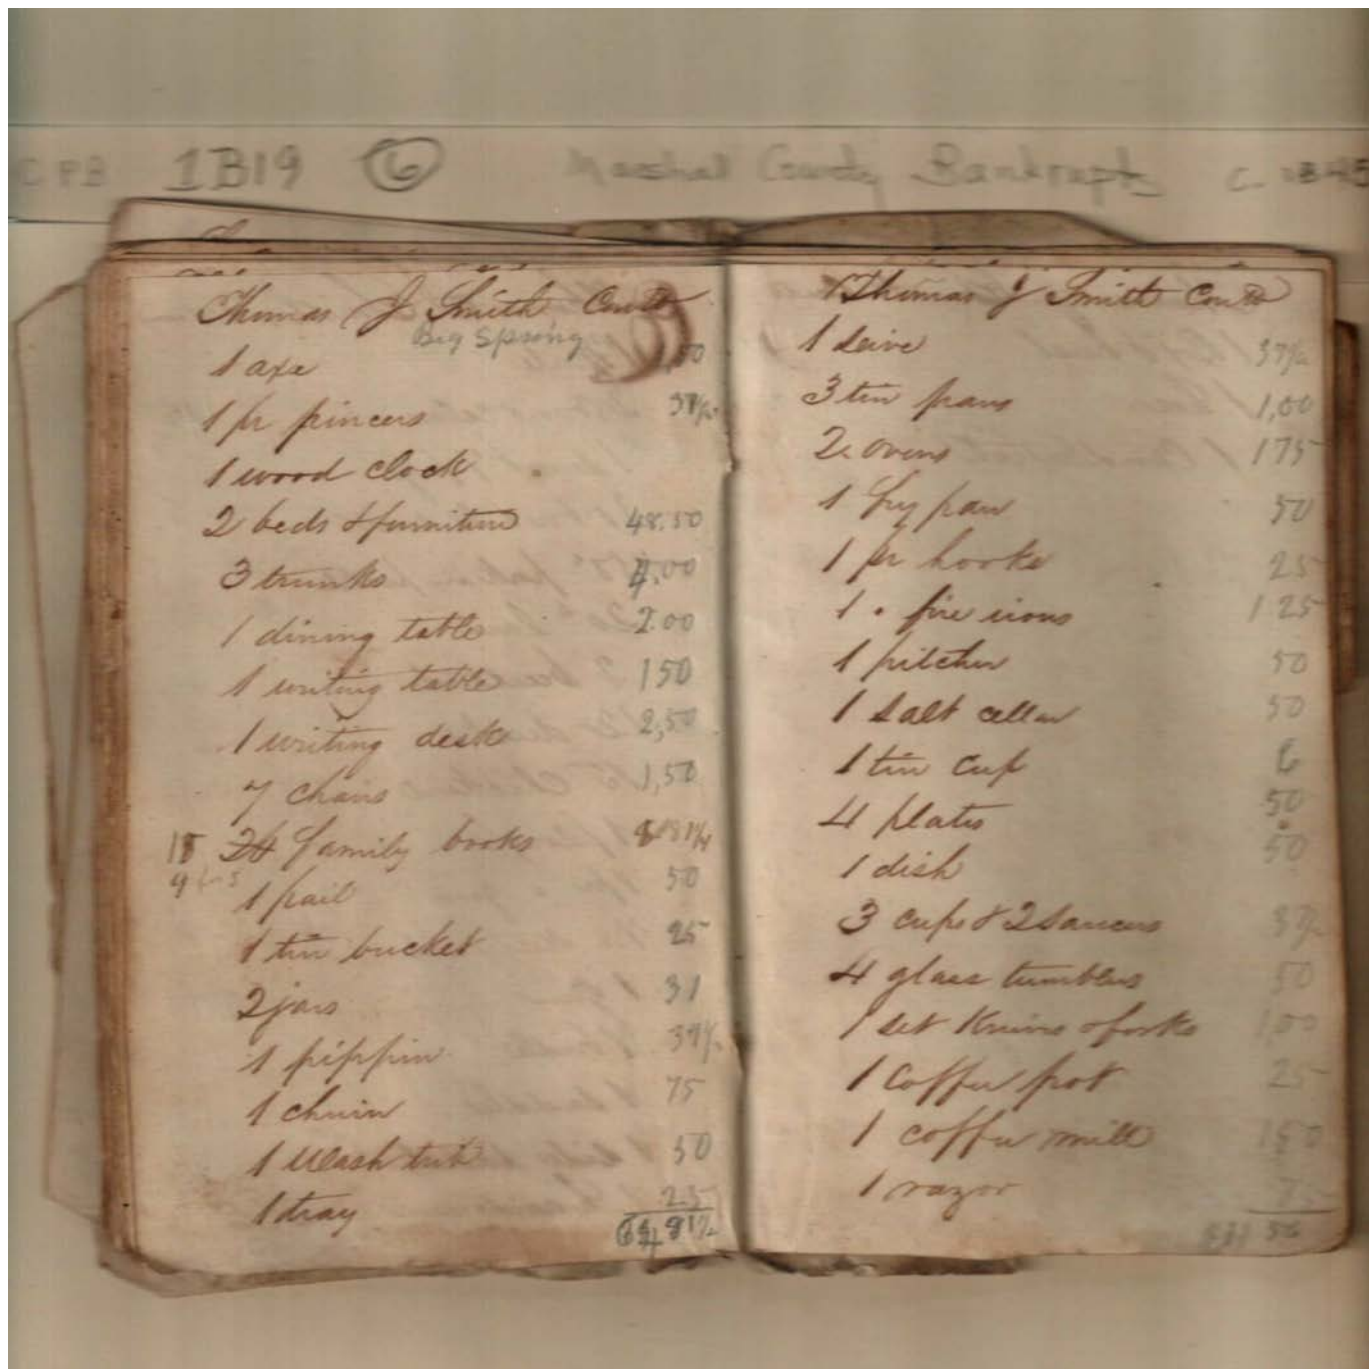 CPB 1B19 6 Marshal County Bankrupts C 1845
Thomas J Smith Contd
Big Spring
1 axe 50
1 pr pincers 37½
1 wood clock
2 beds & furniture 48.50
3 trunks 4.00
1 dining table 2.00
1 writing table 150
1 writing desk 2,50
7 chairs 1,50
18 24 family books
9
1 pail 50
1 tin bucket 25
2 jars 31
1 pippin 37½
1 churn 75
1 wash tub 50
1 tray 25
64 81½
Thomas J Smith Contd
1 seive 37½
3 tin pans 1,00
2 ovens 175
1 fry pan 50
1 pr hooks 25
1 " fire irons 1 25
1 pitcher 50
1 salt cellar 50
1 tin cup 6
4 plates 50
1 dish 50
3 cups & 2 saucers 37½
4 glass tumblers 50
1 set Knives & forks 1,00
1 coffee pot 25
1 coffee mill 150
1 razor